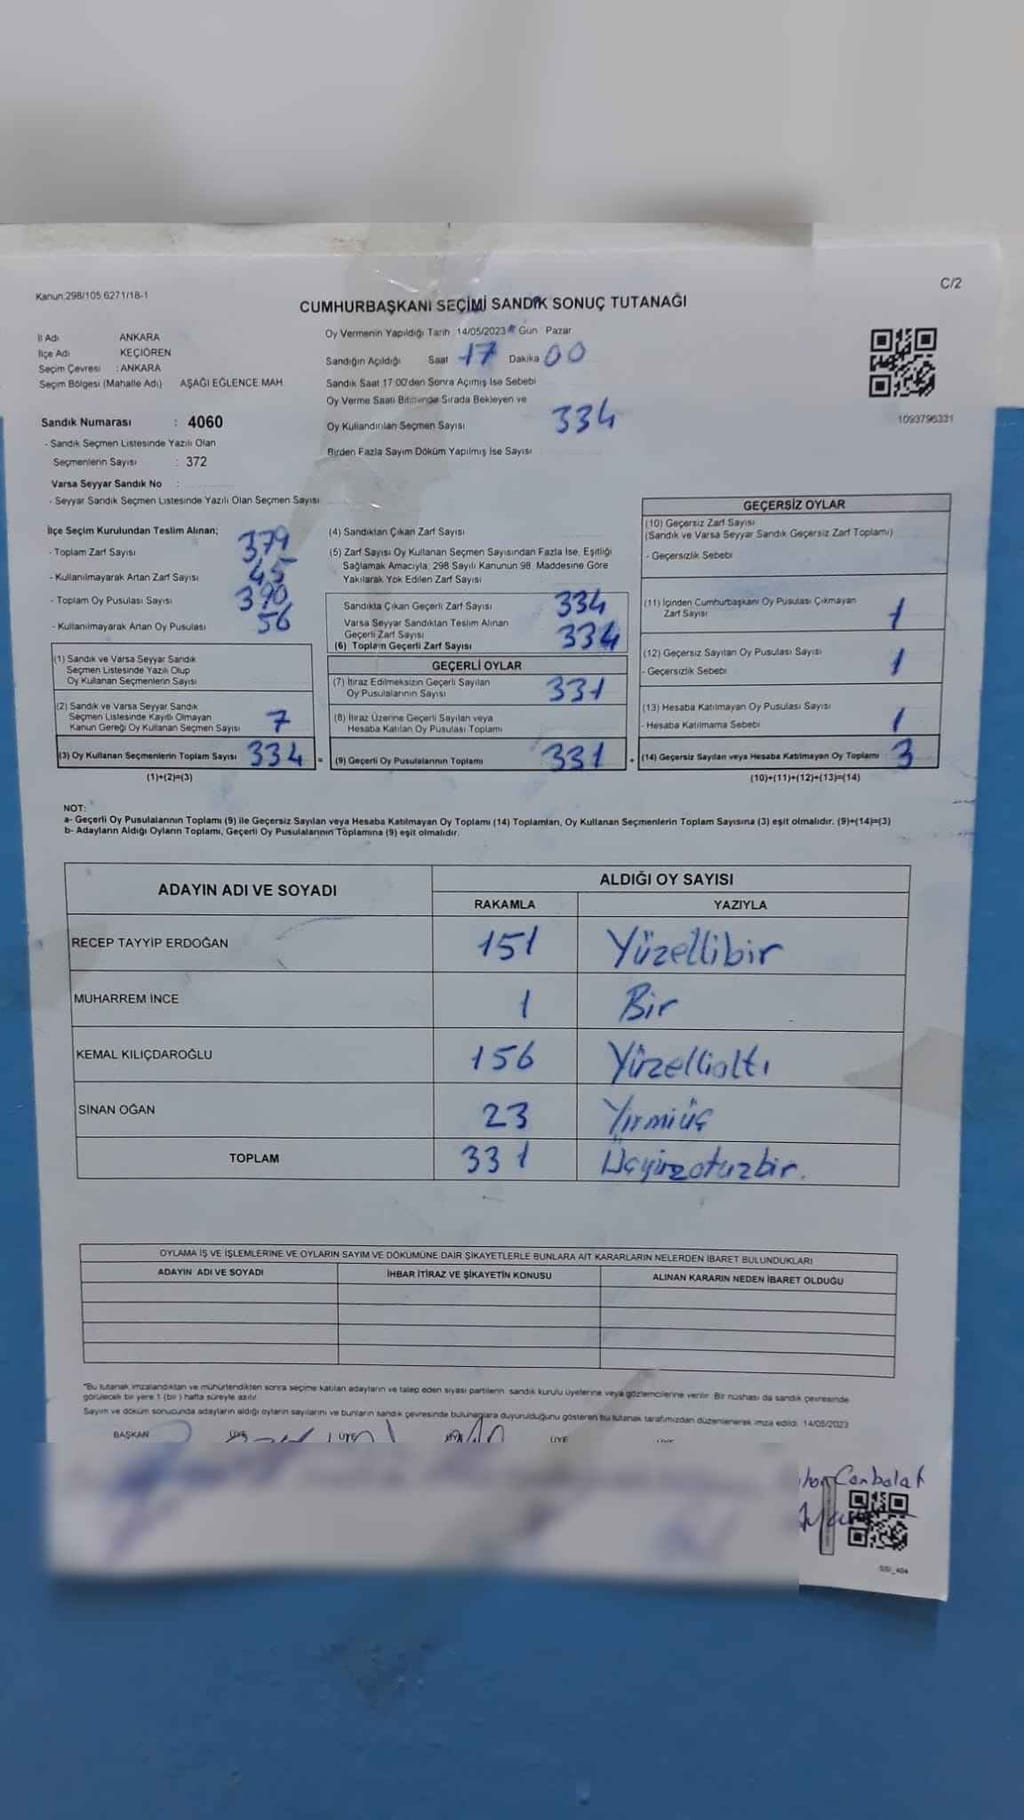 C/2
Kanun:298/105,6271/18-1
CUMHURBAŞKANI SEÇİMİ SANDIK SONUÇ TUTANAĞI
İl Adı ANKARA
İlçe Adı KEÇİÖREN
Seçim Çevresi : ANKARA
Seçim Bölgesi (Mahalle Adı) AŞAĞI EĞLENCE MAH
Oy Vermenin Yapıldığı Tarih 14/05/2023 Gün Pazar
Sandığın Açıldığı Saat 17 Dakika 00
Sandık Saat 17:00'den Sonra Açımış İse Sebebi
Oy Verme Saati Bitiminde Sırada Bekleyen ve
Oy Kullandırılan Seçmen Sayısı 334
Birden Fazla Sayım Döküm Yapılmış İse Sayısı
1093796331
Sandık Numarası : 4060
- Sandık Seçmen Listesinde Yazılı Olan
Seçmenlerin Sayısı : 372
Varsa Seyyar Sandık No :
- Seyyar Sandık Seçmen Listesinde Yazılı Olan Seçmen Sayısı
İlçe Seçim Kurulundan Teslim Alınan;
- Toplam Zarf Sayısı 379
- Kullanılmayarak Artan Zarf Sayısı 45
- Toplam Oy Pusulası Sayısı 390
- Kullanılmayarak Artan Oy Pusulası 56
(1) Sandık ve Varsa Seyyar Sandık
Seçmen Listesinde Yazılı Olup
Oy Kullanan Seçmenlerin Sayısı
(2) Sandık ve Varsa Seyyar Sandık
Seçmen Listesinde Kayıtlı Olmayan
Kanun Gereği Oy Kullanan Seçmen Sayısı 7
(3) Oy Kullanan Seçmenlerin Toplam Sayısı 334 =
(1)+(2)=(3)
(4) Sandıktan Çıkan Zarf Sayısı
(5) Zarf Sayısı Oy Kullanan Seçmen Sayısından Fazla İse, Eşitliği
Sağlamak Amacıyla, 298 Sayılı Kanunun 98. Maddesine Göre
Yakılarak Yok Edilen Zarf Sayısı
Sandıkta Çıkan Geçerli Zarf Sayısı 334
Varsa Seyyar Sandıktan Teslim Alınan
Geçerli Zarf Sayısı
(6) Toplam Geçerli Zarf Sayısı 334
GEÇERLİ OYLAR
(7) İtiraz Edilmeksizin Geçerli Sayılan
Oy Pusulalarının Sayısı 331
(8) İtiraz Üzerine Geçerli Sayılan veya
Hesaba Katılan Oy Pusulası Toplamı
(9) Geçerli Oy Pusulalarının Toplamı 331 +
GEÇERSİZ OYLAR
(10) Geçersiz Zarf Sayısı
(Sandık ve Varsa Seyyar Sandık Geçersiz Zarf Toplamı)
- Geçersizlik Sebebi
(11) İçinden Cumhurbaşkanı Oy Pusulası Çıkmayan
Zarf Sayısı 1
(12) Geçersiz Sayılan Oy Pusulası Sayısı 1
- Geçersizlik Sebebi
(13) Hesaba Katılmayan Oy Pusulası Sayısı
- Hesaba Katılmama Sebebi 1
(14) Geçersiz Sayılan veya Hesaba Katılmayan Oy Toplamı 3
(10)+(11)+(12)+(13)=(14)
NOT:
a- Geçerli Oy Pusulalarının Toplamı (9) ile Geçersiz Sayılan veya Hesaba Katılmayan Oy Toplamı (14) Toplamları, Oy Kullanan Seçmenlerin Toplam Sayısına (3) eşit olmalıdır. (9)+(14)=(3)
b- Adayların Aldığı Oyların Toplamı, Geçerli Oy Pusulalarının Toplamına (9) eşit olmalıdır.
ADAYIN ADI VE SOYADI ALDIĞI OY SAYISI
RAKAMLA YAZIYLA
RECEP TAYYİP ERDOĞAN 151 Yüzellibir
MUHARREM İNCE 1 Bir
KEMAL KILIÇDAROĞLU 156 Yüzellialtı
SİNAN OĞAN 23 Yirmiüç
TOPLAM 331 Üçyüzotuzbir.
OYLAMA İŞ VE İŞLEMLERİNE VE OYLARIN SAYIM VE DÖKÜMÜNE DAİR ŞİKAYETLERLE BUNLARA AİT KARARLARIN NELERDEN İBARET BULUNDUKLARI
ADAYIN ADI VE SOYADI İHBAR İTİRAZ VE ŞİKAYETİN KONUSU ALINAN KARARIN NEDEN İBARET OLDUĞU
"Bu tutanak imzalandıktan ve mühürlendikten sonra seçime katılan adayların ve talep eden siyasi partilerin sandık kurulu üyelerine veya gözlemcilerine verilir. Bir nüshası da sandık çevresinde
görülecek bir yere 1 (bir) hafta süreyle asılır.
Sayım ve döküm sonucunda adayların aldığı oyların sayılarını ve bunların sandık çevresinde bulunanlara duyurulduğunu gösteren bu tutanak tarafımızdan düzenlenerek imza edildi. 14/05/2023
BAŞKAN ÜYE ÜYE ÜYE ÜYE
Canbolat